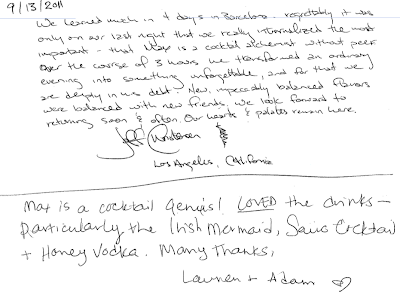 9/13/2011
We learned much in 4 days in Barcelona. regrettably it was
only on our last night that we really internalized the most
important - that Max is a cocktail alchemist without peer
Over the course of 3 hours he transformed an ordinary
evening into something unforgettable, and for that we
are deeply in his debt. New, impeccably balanced flavors
were balanced with new friends. We look forward to
returning soon & often. Our hearts & palates remain here.
Jeff
Los Angeles, California
Max is a cocktail Genius! LOVED the drinks-
Particularly the Irish Mermaid, Cocktail
+ Honey Vodka. Many Thanks,
Lauren + Adam